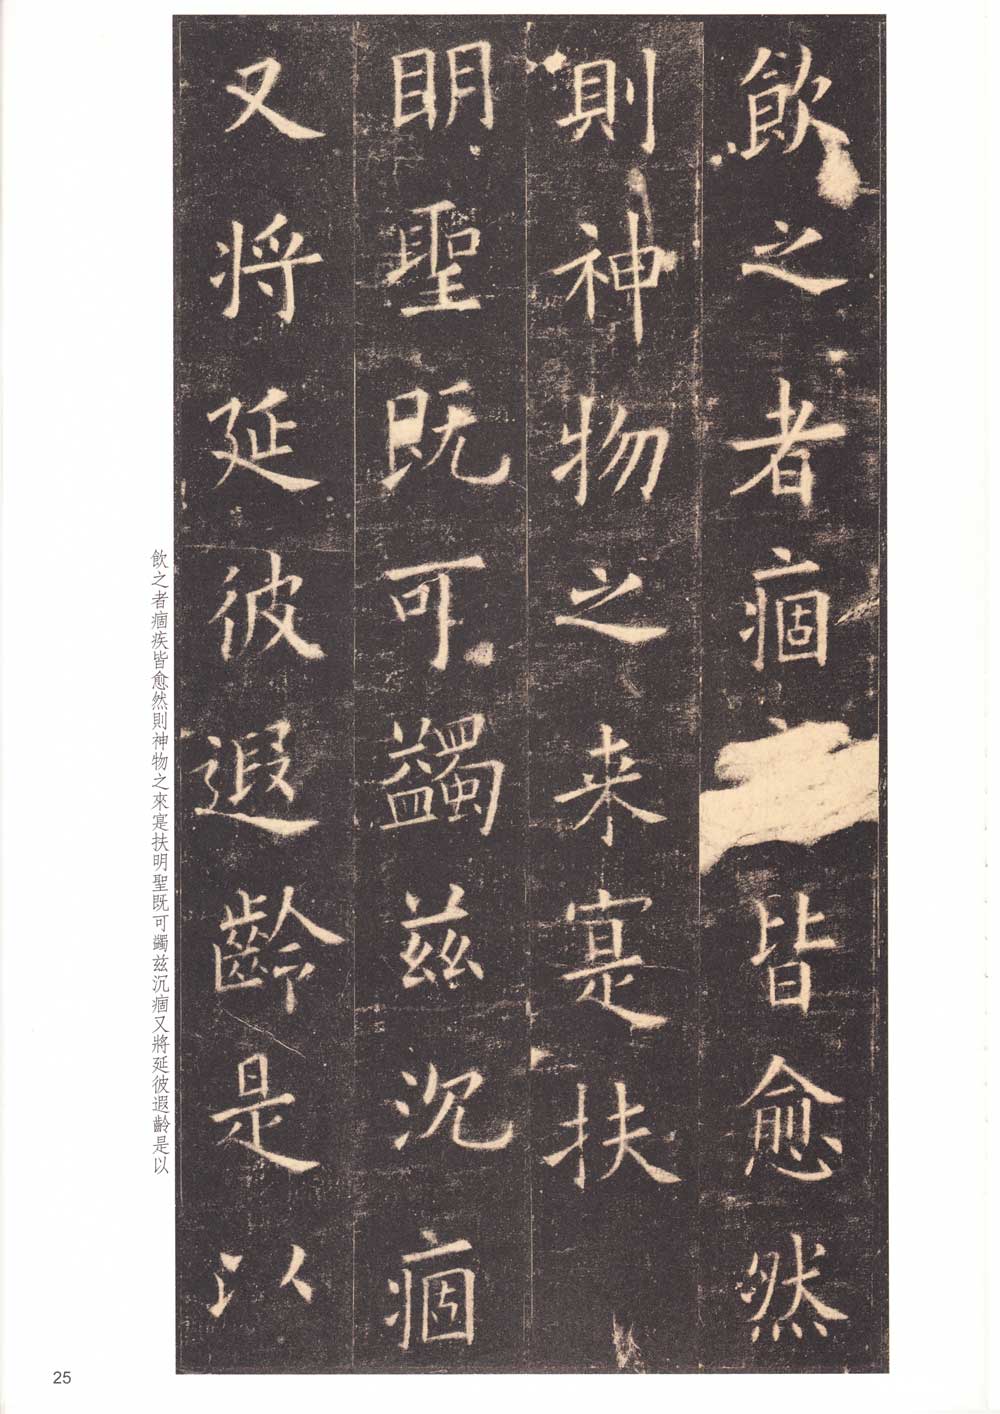 飲之者痼皆愈然
則神物之来寔扶
明聖既可蠲兹沉痼
又将延彼遐齡是以
飲之者痼疾皆愈然則神物之來寔扶明聖既可蠲兹沉痼又將延彼遐齡是以
25